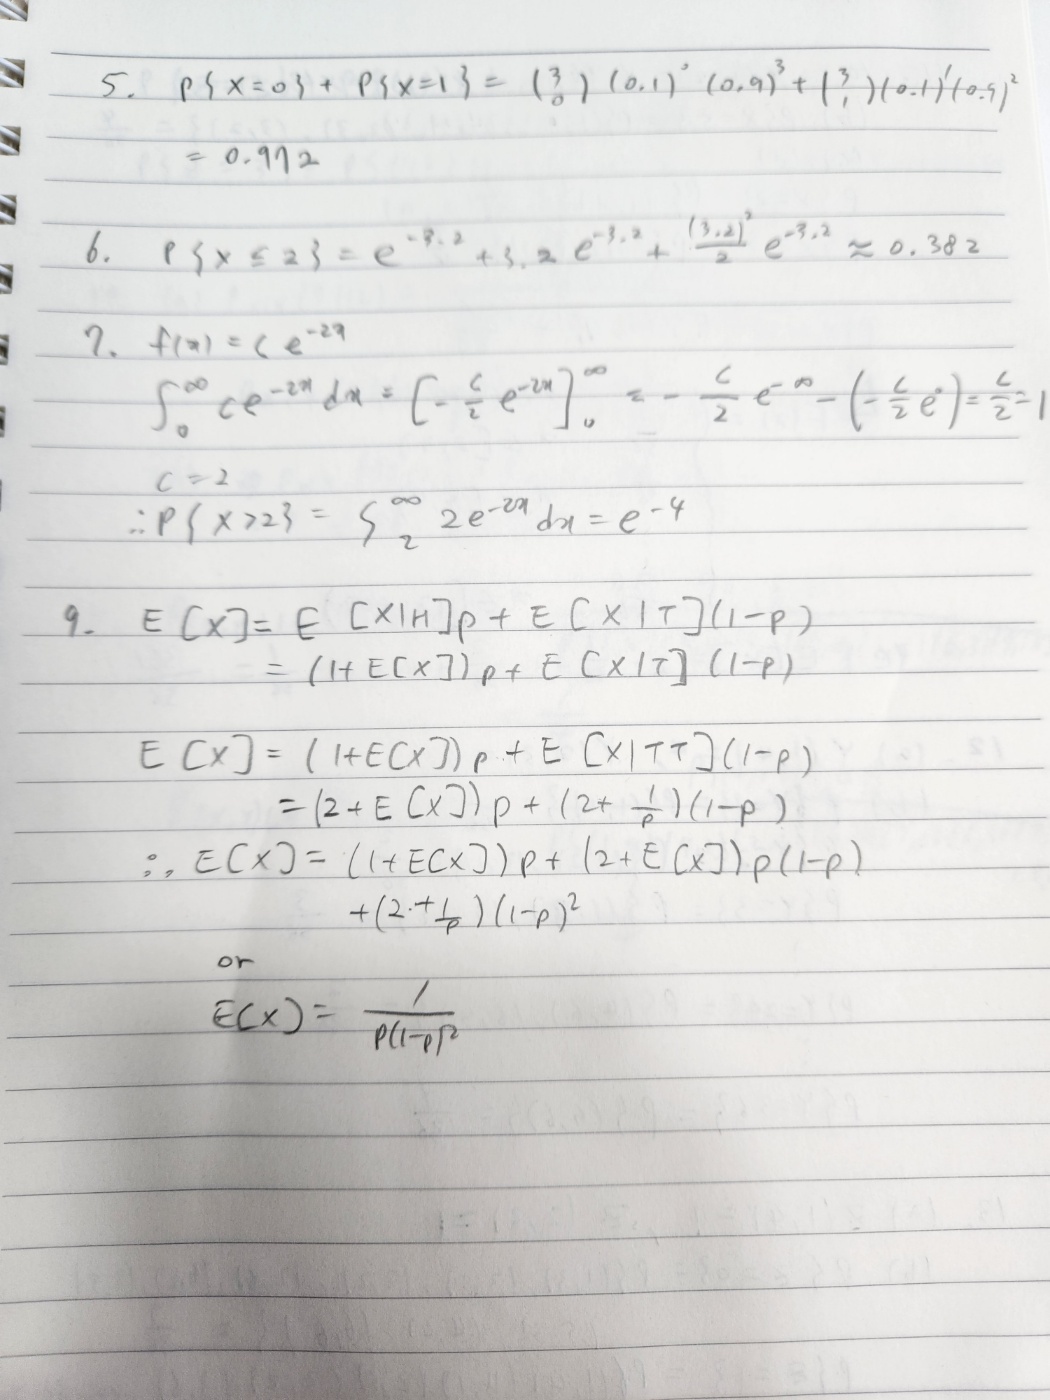 5. P{X=0} + P{X=1} = (3 0) (0.1)⁰ (0.9)³ + (3 1)(0.1)¹(0.9)²
= 0.972
6. P{X ≤ 2} = e^-3.2 + 3.2 e^-3.2 + (3.2)²/2 e^-3.2 ≈ 0.382
7. f(x) = c e^-2x
∫₀^∞ ce^-2x dx = [-c/2 e^-2x]₀^∞ = - c/2 e^-∞ - (-c/2 e⁰) = c/2 = 1
c = 2
∴ P{X>2} = ∫₂^∞ 2e^-2x dx = e^-4
9. E[X] = E[X|H]p + E[X|T](1-p)
= (1+E[X])p + E[X|T](1-p)
E[X] = (1+E[X])p + E[X|TT](1-p)
= (2+E[X])p + (2+ 1/p)(1-p)
∴ E[X] = (1+E[X])p + (2+E[X])p(1-p)
+(2+1/p)(1-p)²
or
E[X] = 1/p(1-p)²